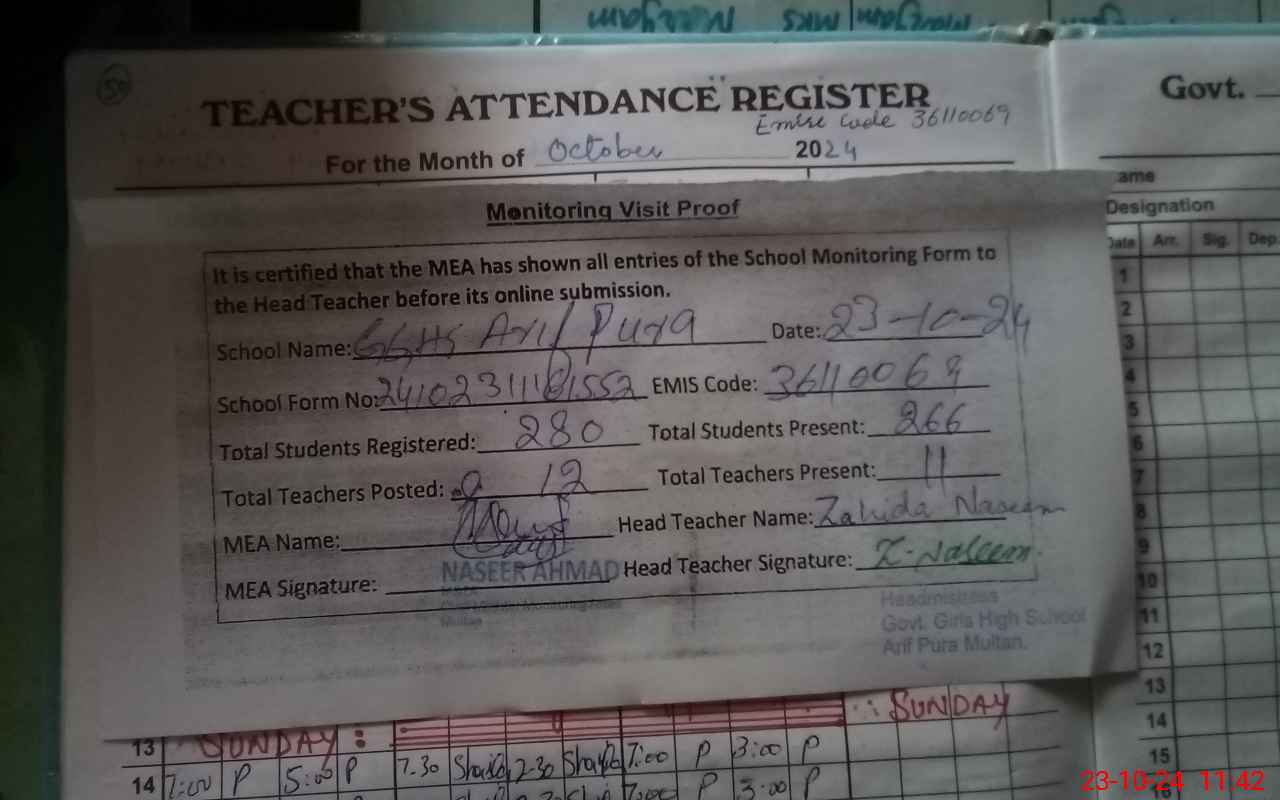 50
TEACHER'S ATTENDANCE REGISTER
Emise Code 36110069
For the Month of October 2024
Monitoring Visit Proof
It is certified that the MEA has shown all entries of the School Monitoring Form to
the Head Teacher before its online submission.
School Name: GGHS Arif Pura Date: 23-10-24
School Form No: EMIS Code: 36110069
Total Students Registered: 280 Total Students Present: 266
Total Teachers Posted: 12 Total Teachers Present: 11
MEA Name: Head Teacher Name: Zahida Naseem
MEA Signature: Head Teacher Signature: Z-Naseem.
NASEER AHMAD
Multan
Headmistress
Govt. Girls High School
Arif Pura Multan.
13 SUNDAY : SUNDAY
14 7:00 P 5:00 P 7.30 2-30 7:00 P 3:00 P
7:00 P 3:00 P
Govt.
ame
Designation
Date Arr. Sig. Dep.
1
2
3
4
5
6
7
8
9
10
11
12
13
14
15
16
23-10-24 11:42